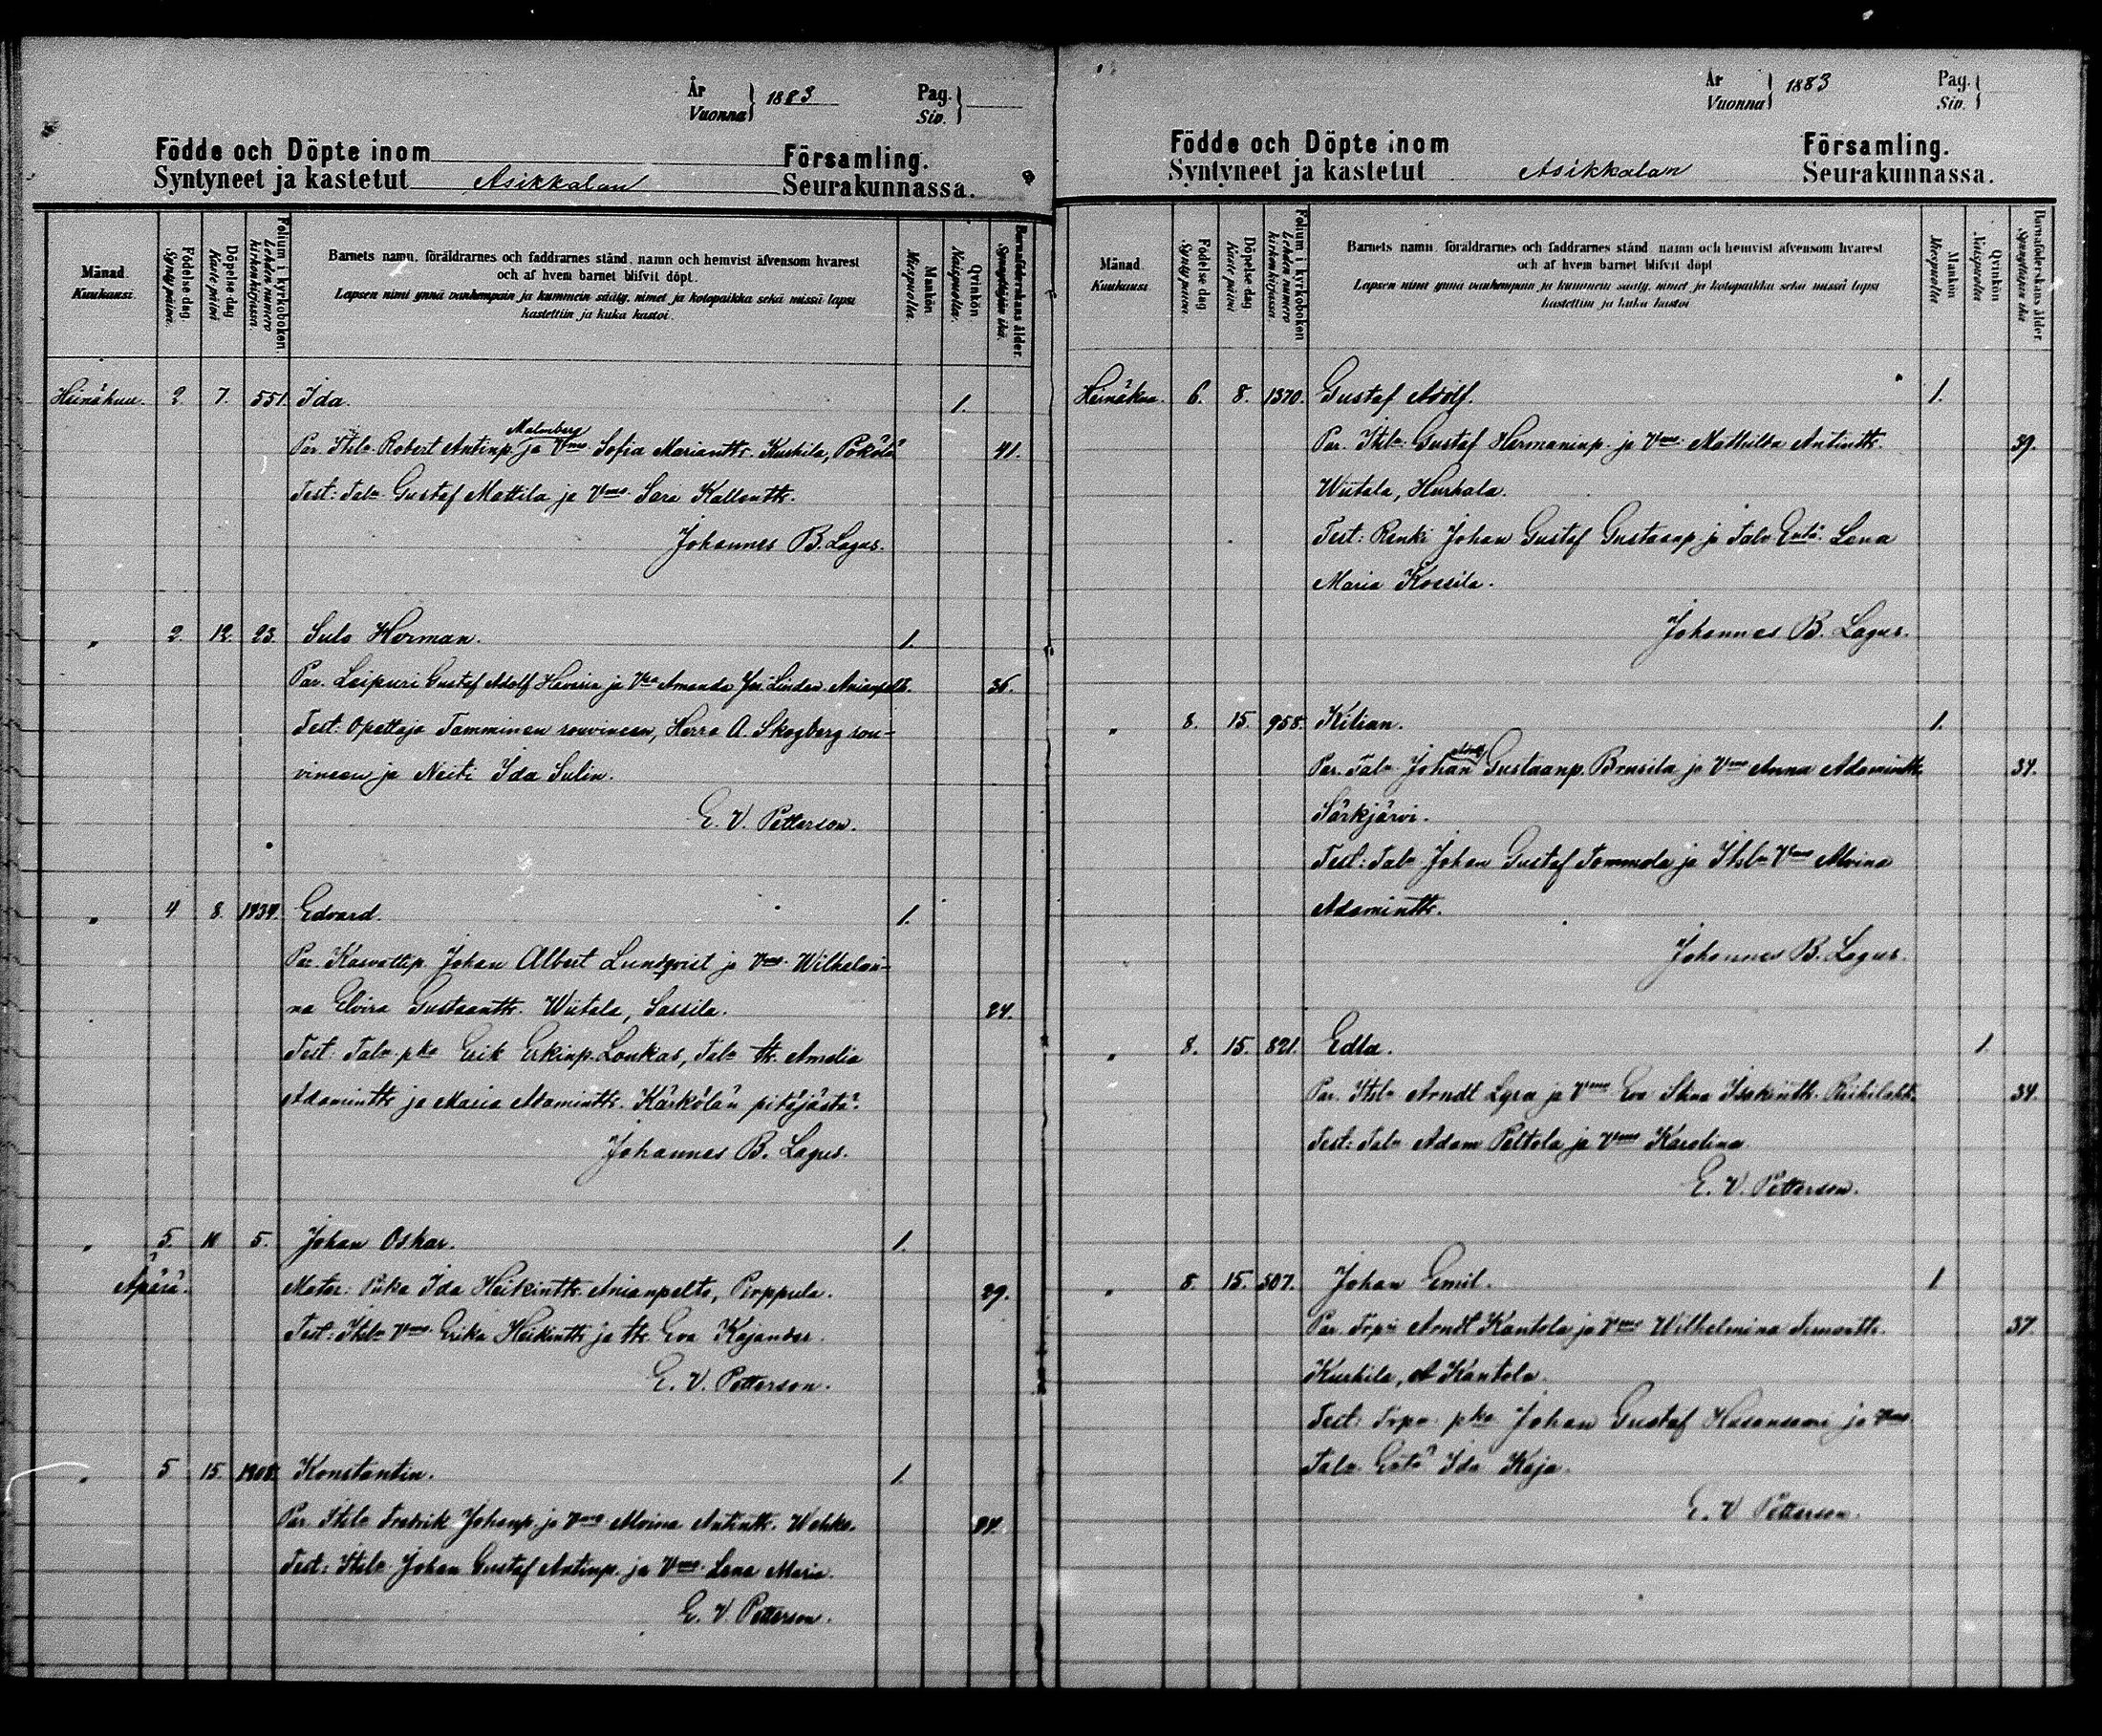 År
Vuonna } 1883
Pag.
Siv. }
Födde och Döpte inom Församling.
Syntyneet ja kastetut Asikkalan Seurakunnassa.
Månad.
Kuukausi.
Födelse dag
Synty päivä.
Döpelse dag
Kaste päivä
Folium i kyrkoboken.
Lehden numero kirkonkirjassa.
Barnets namn, föräldrarnes och faddrarnes stånd, namn och hemvist äfvensom hvarest
och af hvem barnet blifvit döpt.
Lapsen nimi ynnä vanhempain ja kummein sääty, nimet ja kotopaikka sekä missä lapsi
kastettiin ja kuka kastoi.
Mankön
Miespuolia.
Qvinkön
Naispuolia.
Barnaföderskans ålder.
Synnyttäjän ikä.
Heinäkuu. 2. 7. 551. Ida. 1.
Malmberg
Par. Itsl. Robert Antinp. ja Vmo Sofia Mariantr. Kurhila, Pökölä 41.
Test: Tal. Gustaf Mattila ja Vmo Sara Kallentr.
Johannes B. Lagus.
" 2. 12. 23. Sulo Herman. 1.
Par. Leipuri Gustaf Adolf Haveria ja Vmo Amanda Jos. Lindan. Anianpelto. 35.
Test: Opettaja Tamminen rouvineen, Herra A. Skogberg rou-
vineen ja Neiti Ida Sulin.
E. V. Petterson.
" 4 8. 1434. Edvard. 1.
Par. Kasvattip. Johan Albert Lundqvist ja Vmo Wilhelmi-
na Elvira Gustaantr. Wiitala, Sassila. 24.
Test: Tal. pka Erik Erkinp. Loukas, Tal. tr. Amalia
Adamintr. ja Maria Adamintr. Kärkölän pitäjästä.
Johannes B. Lagus.
" 5. 10 5. Johan Oskar. 1.
Äpärä. Mater: Piika Ida Heikintr. Anianpelto, Perppula. 29.
Test: Itsl. Vmo Erika Heikintr. ja tr. Eva Kajander.
E. V. Petterson.
" 5 15. 1208. Konstantin. 1.
Par. Itsl. Fredrik Johanp. ja Vmo Alvina Antintr. Wehka. 24.
Test: Itsl. Johan Gustaf Antinp. ja Vmo Lena Maria.
E. V. Petterson.
År
Vuonna } 1883
Pag.
Siv. }
Födde och Döpte inom Församling.
Syntyneet ja kastetut Asikkalan Seurakunnassa.
Månad.
Kuukausi
Födelse dag
Synty päivä.
Döpelse dag
Kaste päivä
Folium i kyrkoboken
Lehden numero kirkonkirjassa.
Barnets namn, föräldrarnes och faddrarnes stånd, namn och hemvist äfvensom hvarest
och af hvem barnet blifvit döpt
Lapsen nimi ynnä vanhempain ja kummein sääty, nimet ja kotopaikka sekä missä lapsi
kastettiin ja kuka kastoi
Mankön
Miespuolia
Qvinkön
Naispuolia.
Barnaföderskans ålder.
Synnyttäjän ikä
Heinäkuu. 6. 8. 1370. Gustaf Adolf. 1.
Par. Itsl. Gustaf Hermaninp. ja Vmo Mathilda Antintr. 39.
Wiitala, Hurkala.
Test: Renki Johan Gustaf Gustaanp. ja Tal. Entä. Lena
Maria Kossila.
Johannes B. Lagus.
" 8. 15. 958. Kilian. 1.
Adolf
Par. Tal. Johan Gustaanp. Brusila ja Vmo Anna Adamintr. 34.
Särkjärvi.
Test: Tal. Johan Gustaf Tommola ja Itsl. Vmo Alvina
Adamintr.
Johannes B. Lagus.
" 8. 15. 821. Edla. 1.
Par. Itsl. Arndt Lyra ja Vmo Eva Stina Isakintr. Riihilaht. 34.
Test: Tal. Adam Paltola ja Vmo Karolina
E. V. Petterson.
" 8. 15. 507. Johan Emil. 1
Par. Trp. Arndt Kantola ja Vmo Wilhelmina Simontr. 37.
Kurhila, A Kantola.
Test: Trp. pka Johan Gustaf Hasansaari ja Vmo
Tal. Entä Ida Keja.
E. V. Petterson.